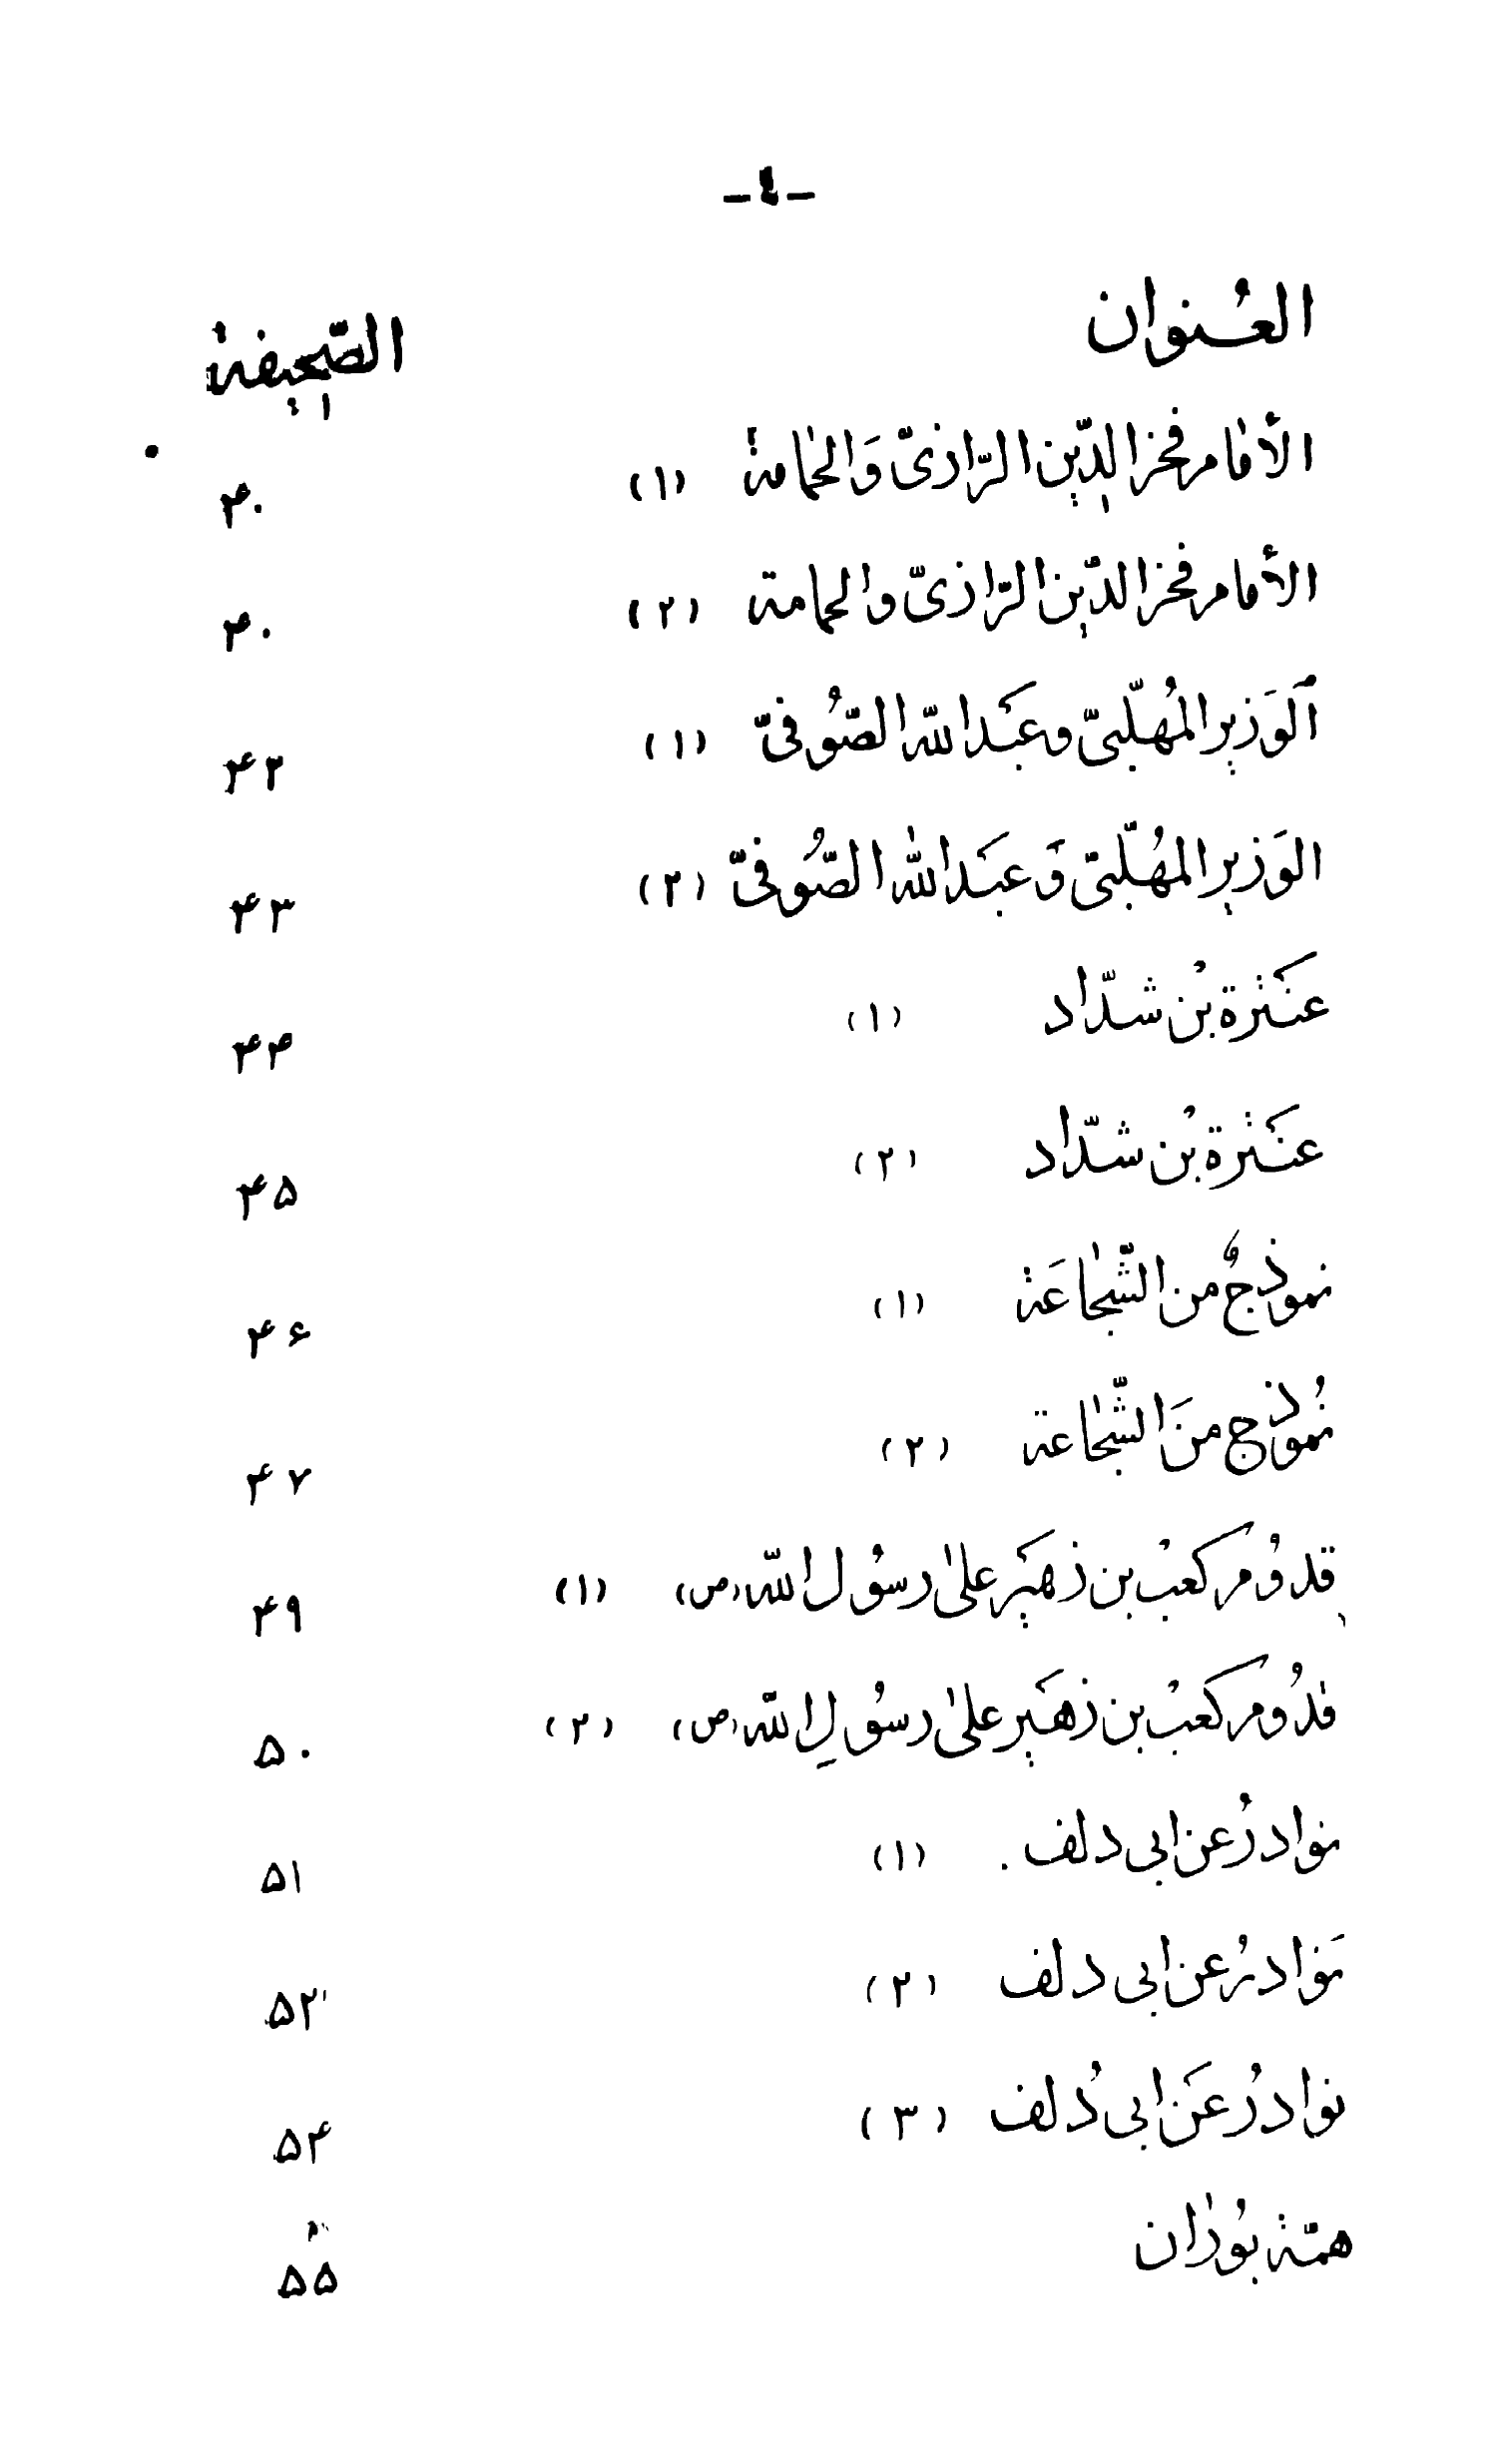 -٤-
العُنوان الصّحيفة
الأمام فخر الدّين الرّازيّ وَالحمامة (١) ۴۰
الأمام فخر الدّين الرّازيّ والحمامة (٢) ۴۰
اَلوَزير المُهلّبيّ وعَبْدالله الصّوُفيّ (١) ۴۲
الوَزير المهُلّبيّ وَ عبَدالله الصّوُفيّ (٢) ۴۳
عنَترة بْن شدّاد (١) ۴۴
عنَترة بْن شدّاد (٢) ۴۵
نموذجٌ من الشّجاعَة (١) ۴۶
نمُوذج منَ الشّجاعة (٢) ۴۷
قدوُم كعبْ بن زهَير علىٰ رسوُل الله (ص) (١) ۴۹
قدُوم كعبْ بن زهَير علىٰ رسوُلِ الله (ص) (٢) ۵۰
نوادرُ عن ابي دلف (١) ۵۱
نَوادرُ عن ابي دلف (٢) ۵۲
نوادرُ عَن ابي دُلف (٣) ۵۴
همّة بوُران ۵۵